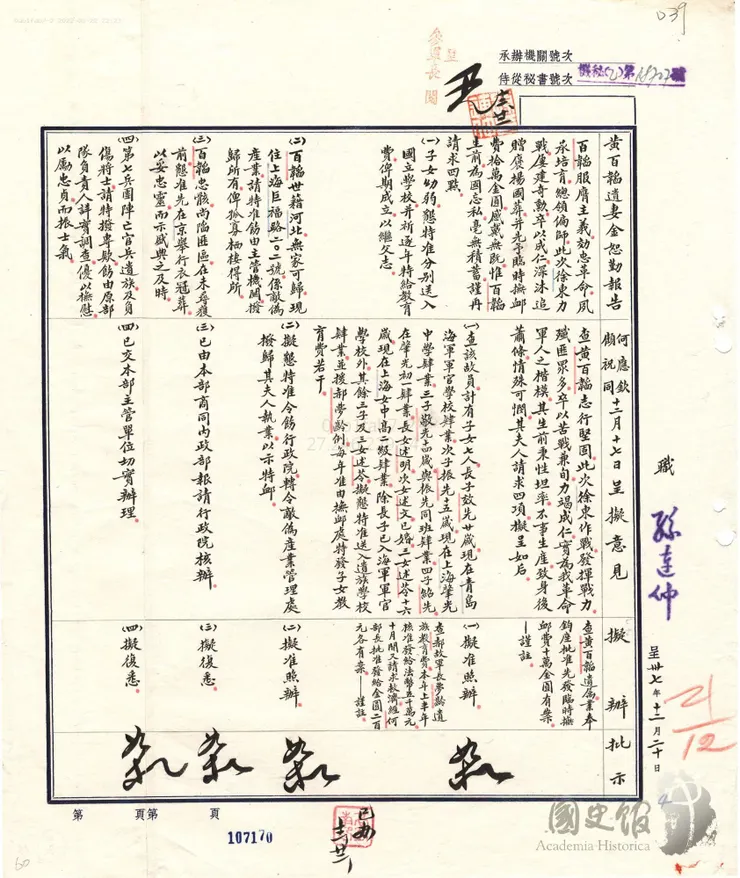 039
承辦機關號次
侍從秘書號次
機秘(乙)第
呈
參軍長 閱
黃百韜遺妻金恕勤報告
百韜服膺主義効忠革命夙
承培育總領偏師此次徐東力
戰屢建奇勳卒以成仁深沐追
贈褒揚國葬并先予臨時撫卹
費拾萬金圓感戴無既惟百韜
生前為國忘私毫無積蓄謹再
請求四點
(一)子女幼弱懇特准分別送入
國立學校并祈逐年特給教育
費俾期成立以繼父志
(二)百韜世籍河北無家可歸現
住上海巨福路二〇二號係敵偽
產業請特准飭由主管機關撥
歸所有俾孤寡栖棲得所
(三)百韜忠骸尚陷匪區在未尋獲
前懇准先在京舉行衣冠葬
以妥忠靈而示盛典之及時
(四)第七兵團陣亡官兵遺族及負
傷將士請特撥專款飭由原部
隊負責人詳實調查優以撫慰
以勵忠貞而振士氣
何應欽
顧祝同 十二月十七日呈擬意見
查黃百韜志行堅固此次徐東作戰發揮戰力
殲匪眾多卒以苦戰兼旬力竭成仁實為我革命
軍人之楷模其生前秉性坦率不事生產致身後
蕭條情殊可憫其夫人請求四項擬呈如后
(一)查該故員計有子女七人長子效先廿歲現在青島
海軍軍官學校肄業次子振先十五歲現在上海肇光
中學肄業三子敬先十四歲與振先同班肄業四子銘先
在肇光初一肄業長女述明次女述文已婚三女述苓十六
歲現在上海女中高二級肄業除長子已入海軍軍官
學校外其餘三子及三女述苓擬懇特准送入遺族學校
肄業並援郝夢齡例每年准由撫卹處特發子女教
育費若干
(二)擬懇特准令飭行政院轉令敵偽產業管理處
撥歸其夫人執業以示特卹
(三)已由本部商同內政部報請行政院核辦
(四)已交本部主管單位切實辦理
擬辦
查黃百韜遺屬業奉
鈞座批准先發臨時撫
卹費十萬金圓有案
—謹註
(一)擬准照辦
查郝故軍長夢齡遺
族教育費本年上半年
核准發給法幣五千萬元
十月間又請求救濟經何
部長批准發給金圓二百
元各有案—謹註
(二)擬准照辦
(三)擬復悉
(四)擬復悉
批示
職 孫連仲
呈卅七年十二月二十日
21/12
第 頁第 頁
107170
已辦
國史館
Academia Historica
60